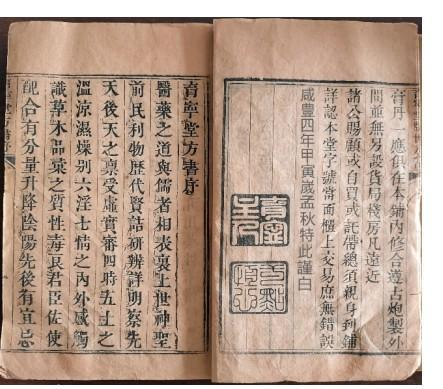 膏丹一應俱在本鋪內修合遵古炮製外
間並無另設貨局棧房凡遠近
諸公賜顧或自買或託帶總須親身到鋪
詳認本堂字號當面櫃上交易庶無錯誤
咸豐四年甲寅歲孟秋特此謹白
育寧堂方書序
醫藥之道與儒者相表裏上世神聖
前民利物歷代賢喆研辦詳明察先
天後天之稟受虛實審四時五土之
溫涼濕燥别六淫七情之内外感觸
識草木品彙之質性毒良君臣佐使
配合有分量升降陰陽先後有宜忌